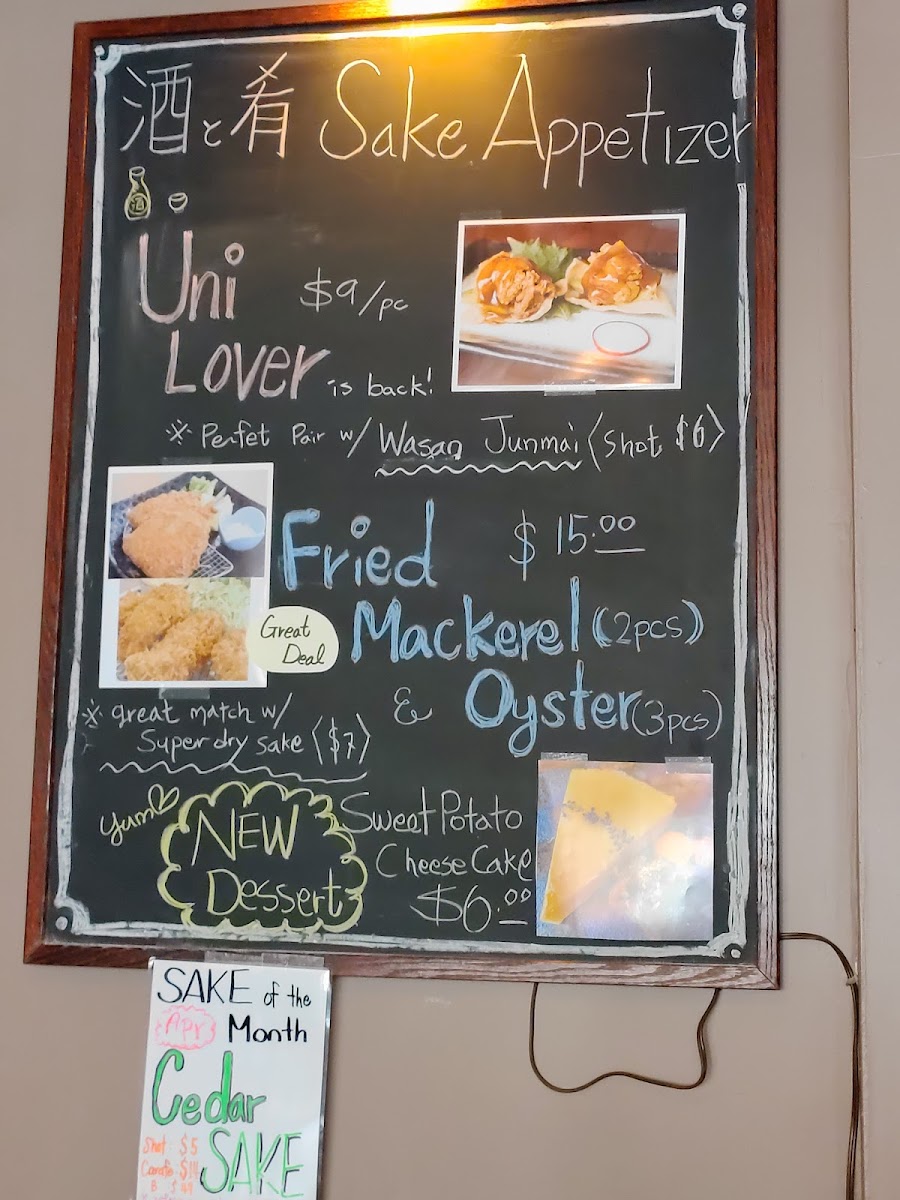 酒と肴 Sake Appetizer
Uni $9/pc
Lover is back!
※ Perfet Pair w/ Wasan Junmai 〈Shot $6〉
Fried $15.00
Great Deal
Mackerel (2pcs)
& Oyster (3pcs)
※ great match w/
Super dry sake 〈$7〉
yum
NEW
Dessert
Sweet Potato
Cheese Cake
$6.00
SAKE of the
Apr Month
Cedar
SAKE
Shot: $5
Carafe: $14
B $49